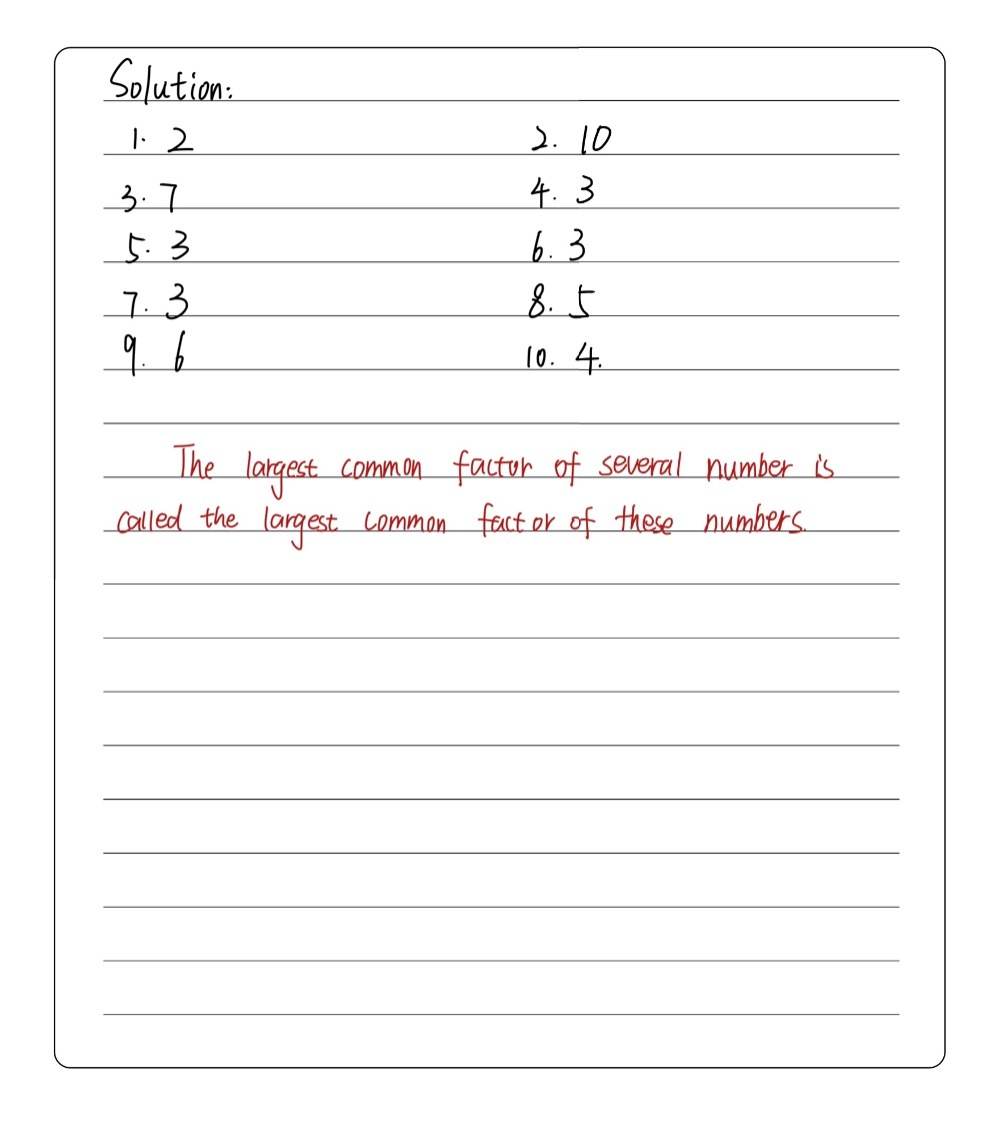 Solution:
1. 2 2. 10
3. 7 4. 3
5. 3 6. 3
7. 3 8. 5
9. 6 10. 4.
The largest common factor of several number is
called the largest common factor of these numbers.